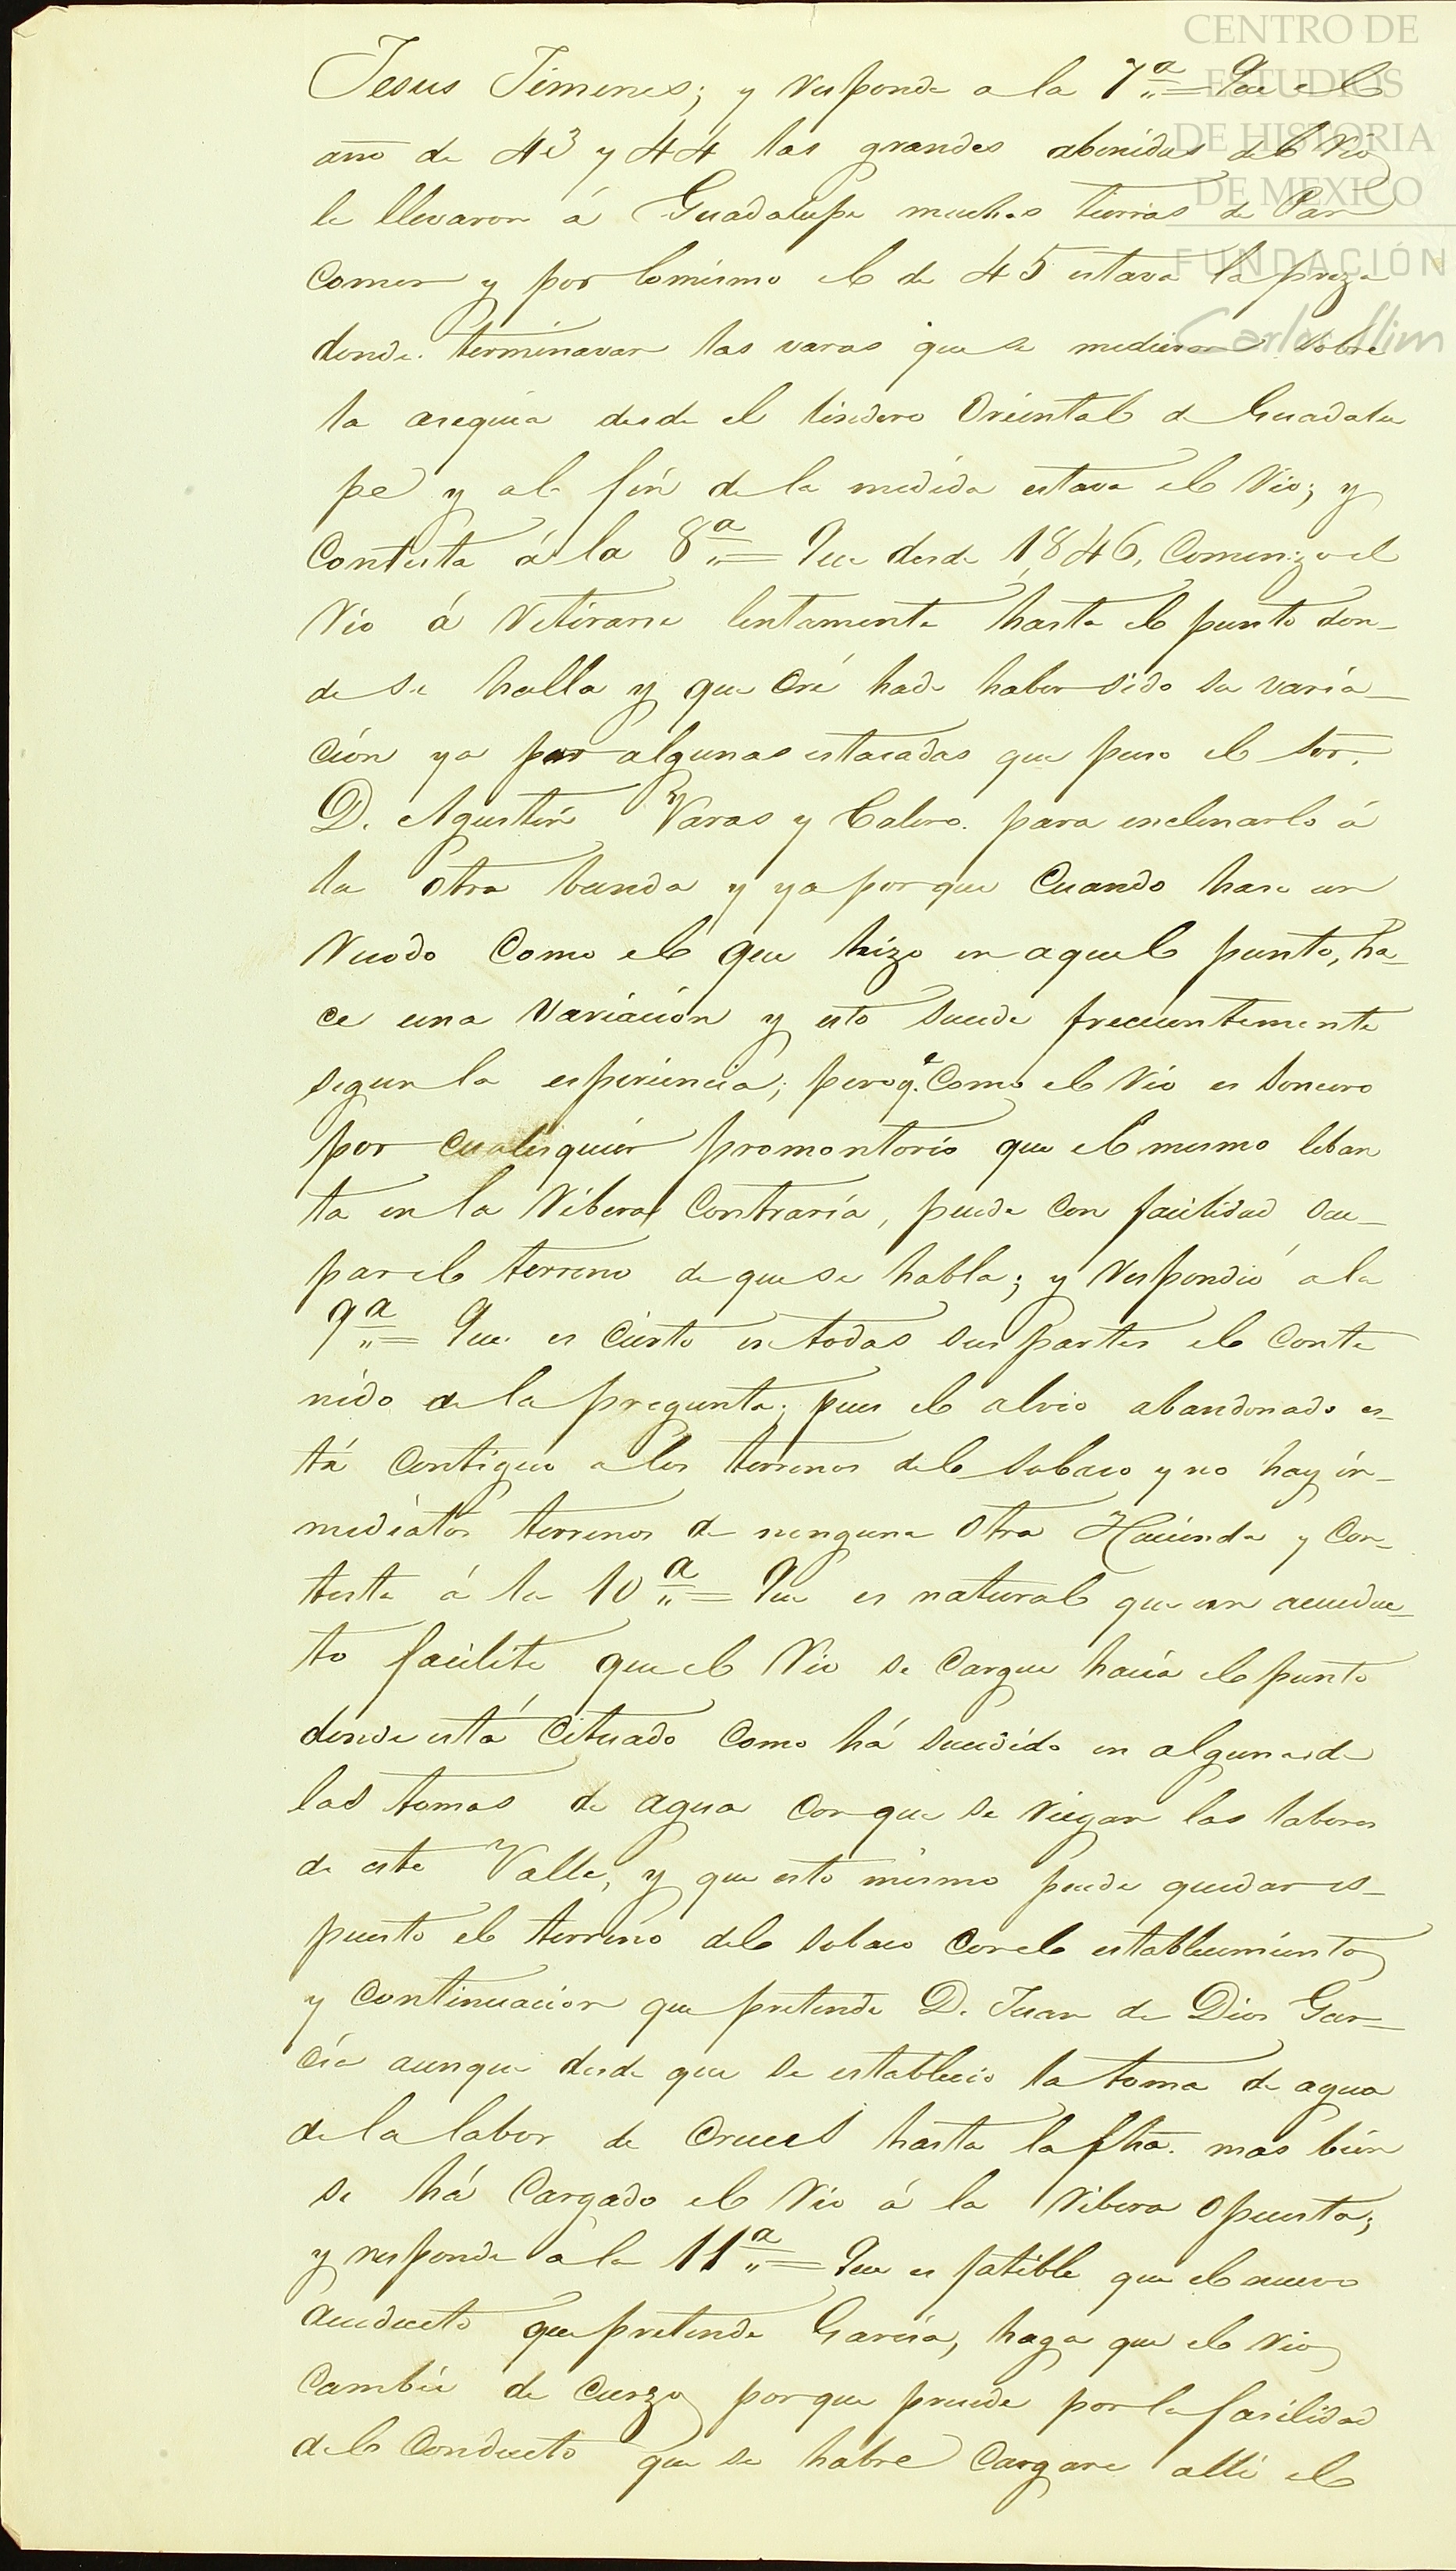 CENTRO DE
ESTUDIOS
DE HISTORIA
DE MEXICO
FUNDACIÓN
Carlos Slim
Jesus Jimenes; y responde a la 7ª = Que el
año de 43 y 44 las grandes abenidas del rio
le llevaron á Guadalupe muchas tierras de Pan
comer y por lo mismo el de 45 estava la preza
donde terminavan las varas que se midieron sobre
la asequia desde el lindero Oriental de Guadalu
pe y al fin de la medida estava el rio; y
Contesta á la 8ª = Que desde 1846, Comenzo el
rio á retirarse lentamente hasta el punto don-
de se halla y que cré hade haber sido su varia-
ción ya por algunas estacadas que puso el Sor.
D. Agustin Varas y Calero para inclinarlo á
la otra banda y ya porque Cuando hase un
ruodo Como el que hizo en aquel punto, ha-
ce una variación y esto sucede frecuentemente
segun la esperiencia; pero q.e Como el rio es somero
por cualesquier promontorio que el mismo leban
ta en la ribera contraria, puede con facilidad ocu-
par el terreno de que se habla; y respondió a la
9ª = Que es cierto en todas sus partes el conte
nido de la pregunta; pues el alvio abandonado es-
tá contiguo a los terrenos del sobaco y no hay in-
mediatos terrenos de ninguna otra Hacienda y con-
testa á la 10ª = Que es natural que un acueduc-
to facilite que el rio se cargue hacia el punto
donde está cituado como há sucedido en alguna de
las tomas de agua con que se riegan las labores
de este Valle, y que esto mismo puede quedar es-
puesto el terreno del sobaco con el establecimiento
y continuacion que pretende D. Juan de Dios Gar-
cía aunque desde que se establecio la toma de agua
de la labor de Cruces hasta la fha. mas bien
se há cargado el rio á la ribera opuesta;
y responde a la 11ª = Que es fatible que el nuevo
acuducto que pretende Garcia, haga que el rio
cambie de curzo porque puede por la facilidad
del Conducto que se habre cargarse alli el